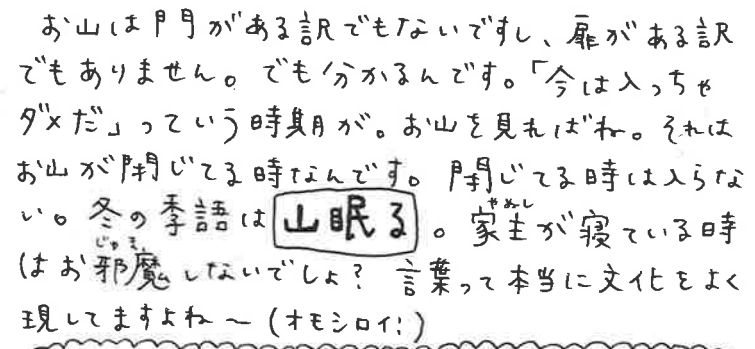 お山は門がある訳でもないですし、扉がある訳
でもありません。でも分かるんです。「今は入っちゃ
ダメだ」っていう時期が。お山を見ればね。それは
お山が閉じてる時なんです。閉じてる時は入らな
い。冬の季語は山眠る。家主が寝ている時
はお邪魔しないでしょ？言葉って本当に文化をよく
現してますよね〜(オモシロイ!)